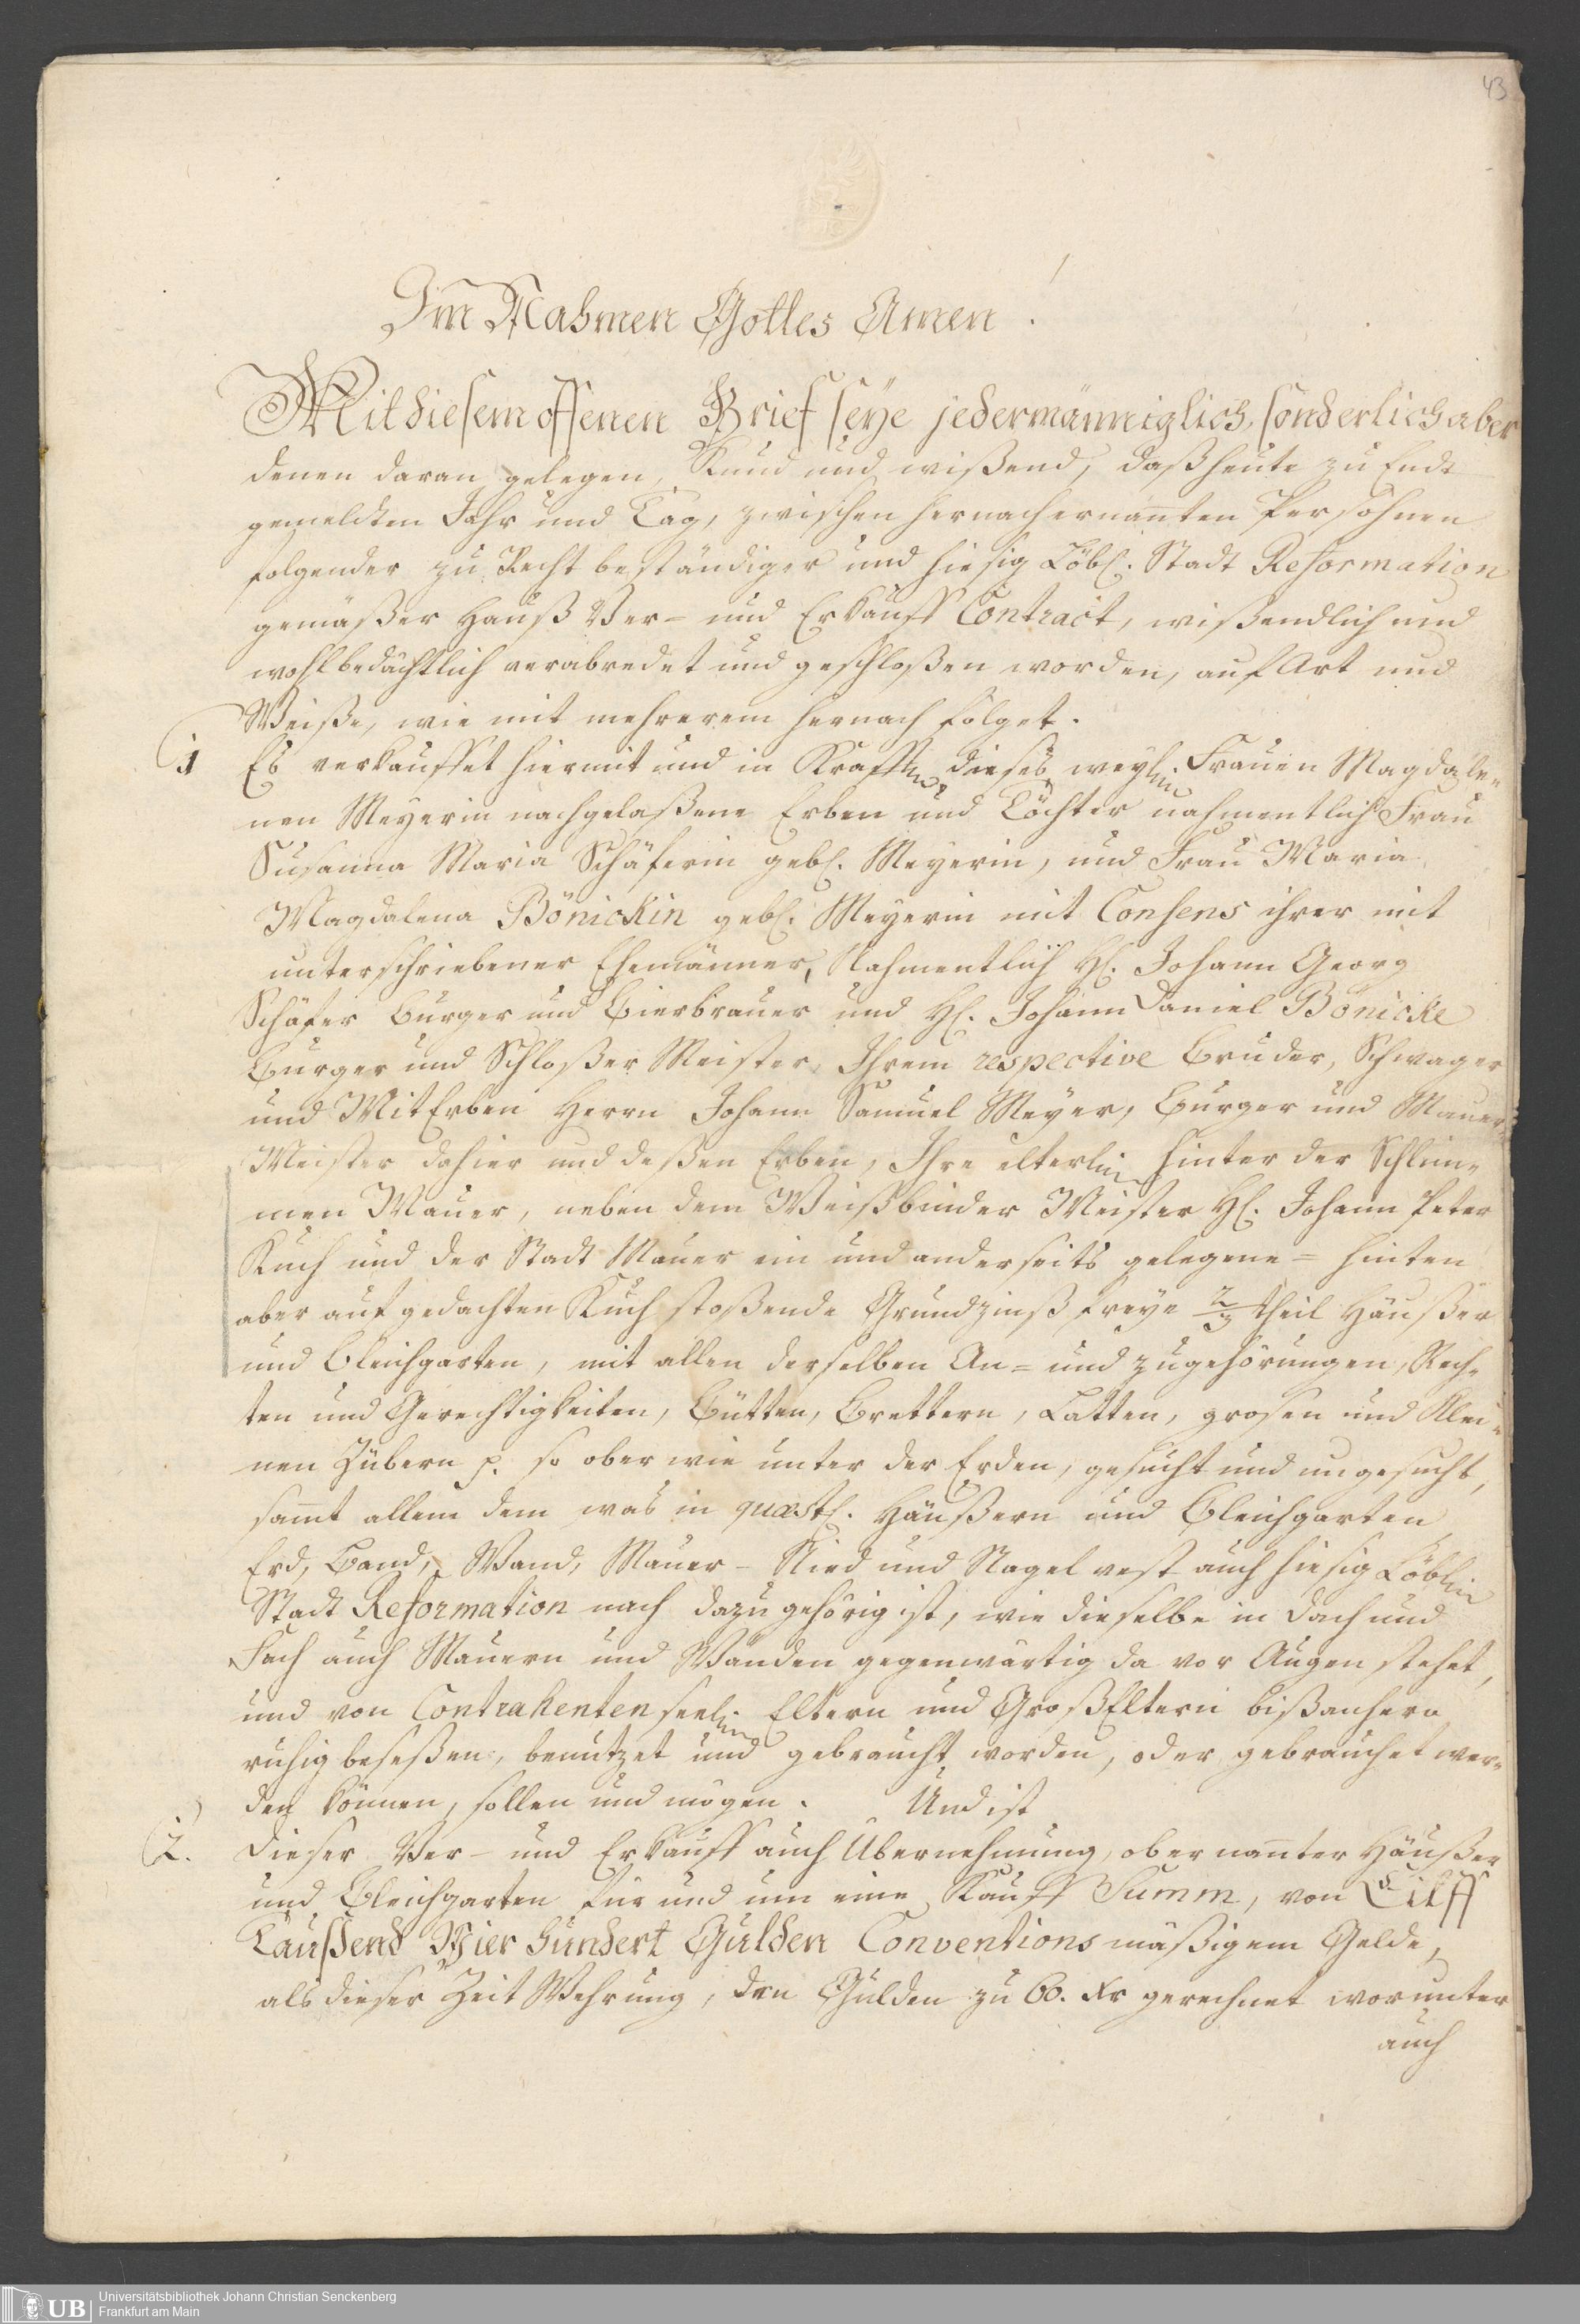 43
Im Nahmen Gottes Amen!
Mit diesem offenen Brief seye jedermänniglich, sonderlich aber
denen daran gelegen, Kund und wißend, daß heute zu Ende
gemelten Jahr und Tag, zwischen hernach ernanten Persohnen
folgender zu Recht beständiger und hiesig Löbl. Stadt Reformation
gemäßer Hauß Ver- und Erkauff Contract, wißendlich und
wohlbedächtlich verabredet und geschloßen worden, auf Art und
Weiße, wie mit mehrerem hernach folget.
1 Es verkauffet hiermit und in Krafft dieses weyl. Frauen Magdale-
nen Meyerin nachgelaßene Erben und Töchter nahmentlich Frau
Susanna Maria Schäferin gebl. Meyerin, und Frau Maria
Magdalena Bönickin gebl. Meyerin mit Consens ihrer mit
unterschriebener Ehemänner, Nahmentlich H. Johann Georg
Schäfer Burger und Bierbrauer und H. Johann Daniel Bönicke
Burger und Schloßer Meister, Ihrem respective Bruder, Schwager
und MitErben Herrn Johann Samuel Meyer, Burger und Mauer-
Meister dahier und deßen Erben, Ihre elterl. hinter der Schlim-
men Mauer, neben dem Weißbinder Meister H. Johann Peter
Kuch und der Stadt Mauer ein und anderseits gelegene= hinten
aber auf gedachten Kuch stoßende Grundzinß freye 2/3 theil Häußer
und Bleichgarten, mit allen derselben An= und zugehörungen, Rech-
ten und Gerechtigkeiten, Bütten, Brettern, Latten, grosen und Klei-
nen Zübern p. so ober wie unter der Erden, gesucht und ungesucht,
samt allem dem was in quæst. Häußern und Bleichgarten
Erd, Band, Wand, Mauer- Nied und Nagel vest auch hiesig Löbl.
Stadt Reformation nach dazu gehörig ist, wie dieselbe in Dach und
Fach auch Mauern und Wänden gegenwärtig da vor Augen stehet,
und von Contrahenten seel. Eltern und GroßEltern bißanhero
ruhig beseßen, benutzet und gebraucht worden, oder gebrauchet wer-
den können, sollen und mögen. Und ist
2. dieser Ver- und Erkauff auch Übernehmung, obernanter Häußer
und Bleichgarten für und um eine Kauff Summ, von Eilff
Taußend Vier hundert Gulden Conventions mäßigem Gelde,
als dieser Zeit Wehrung, den Gulden zu 60. Xr gerechnet worunter
auch
Universitätsbibliothek Johann Christian Senckenberg
Frankfurt am Main
UB